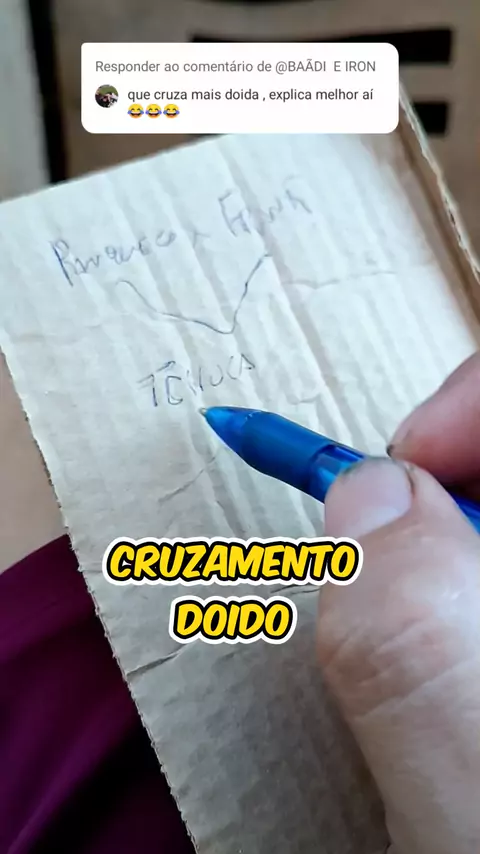 Responder ao comentário de @BAÃDI E IRON
que cruza mais doida , explica melhor aí
😂😂😂
CRUZAMENTO
DOIDO